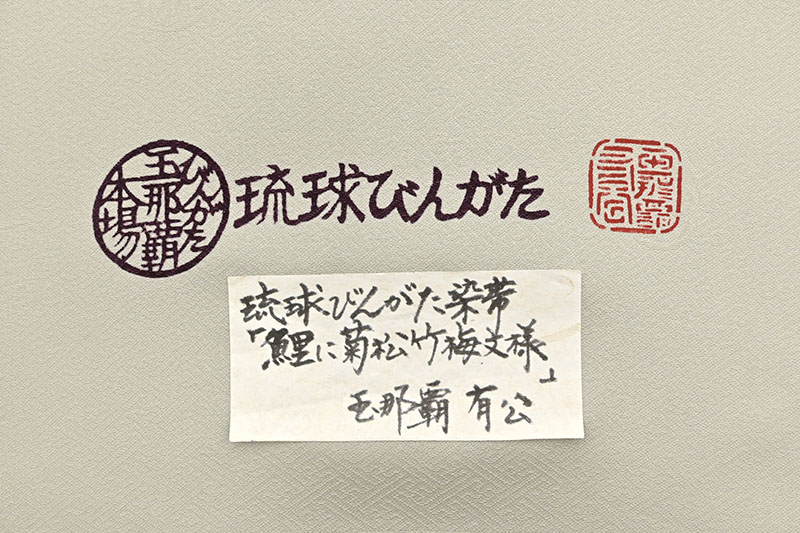 びんがた
玉那覇
本場
琉球びんがた
玉那覇有公
琉球びんがた染帯
「鯉に菊松竹梅文様」
玉那覇 有公